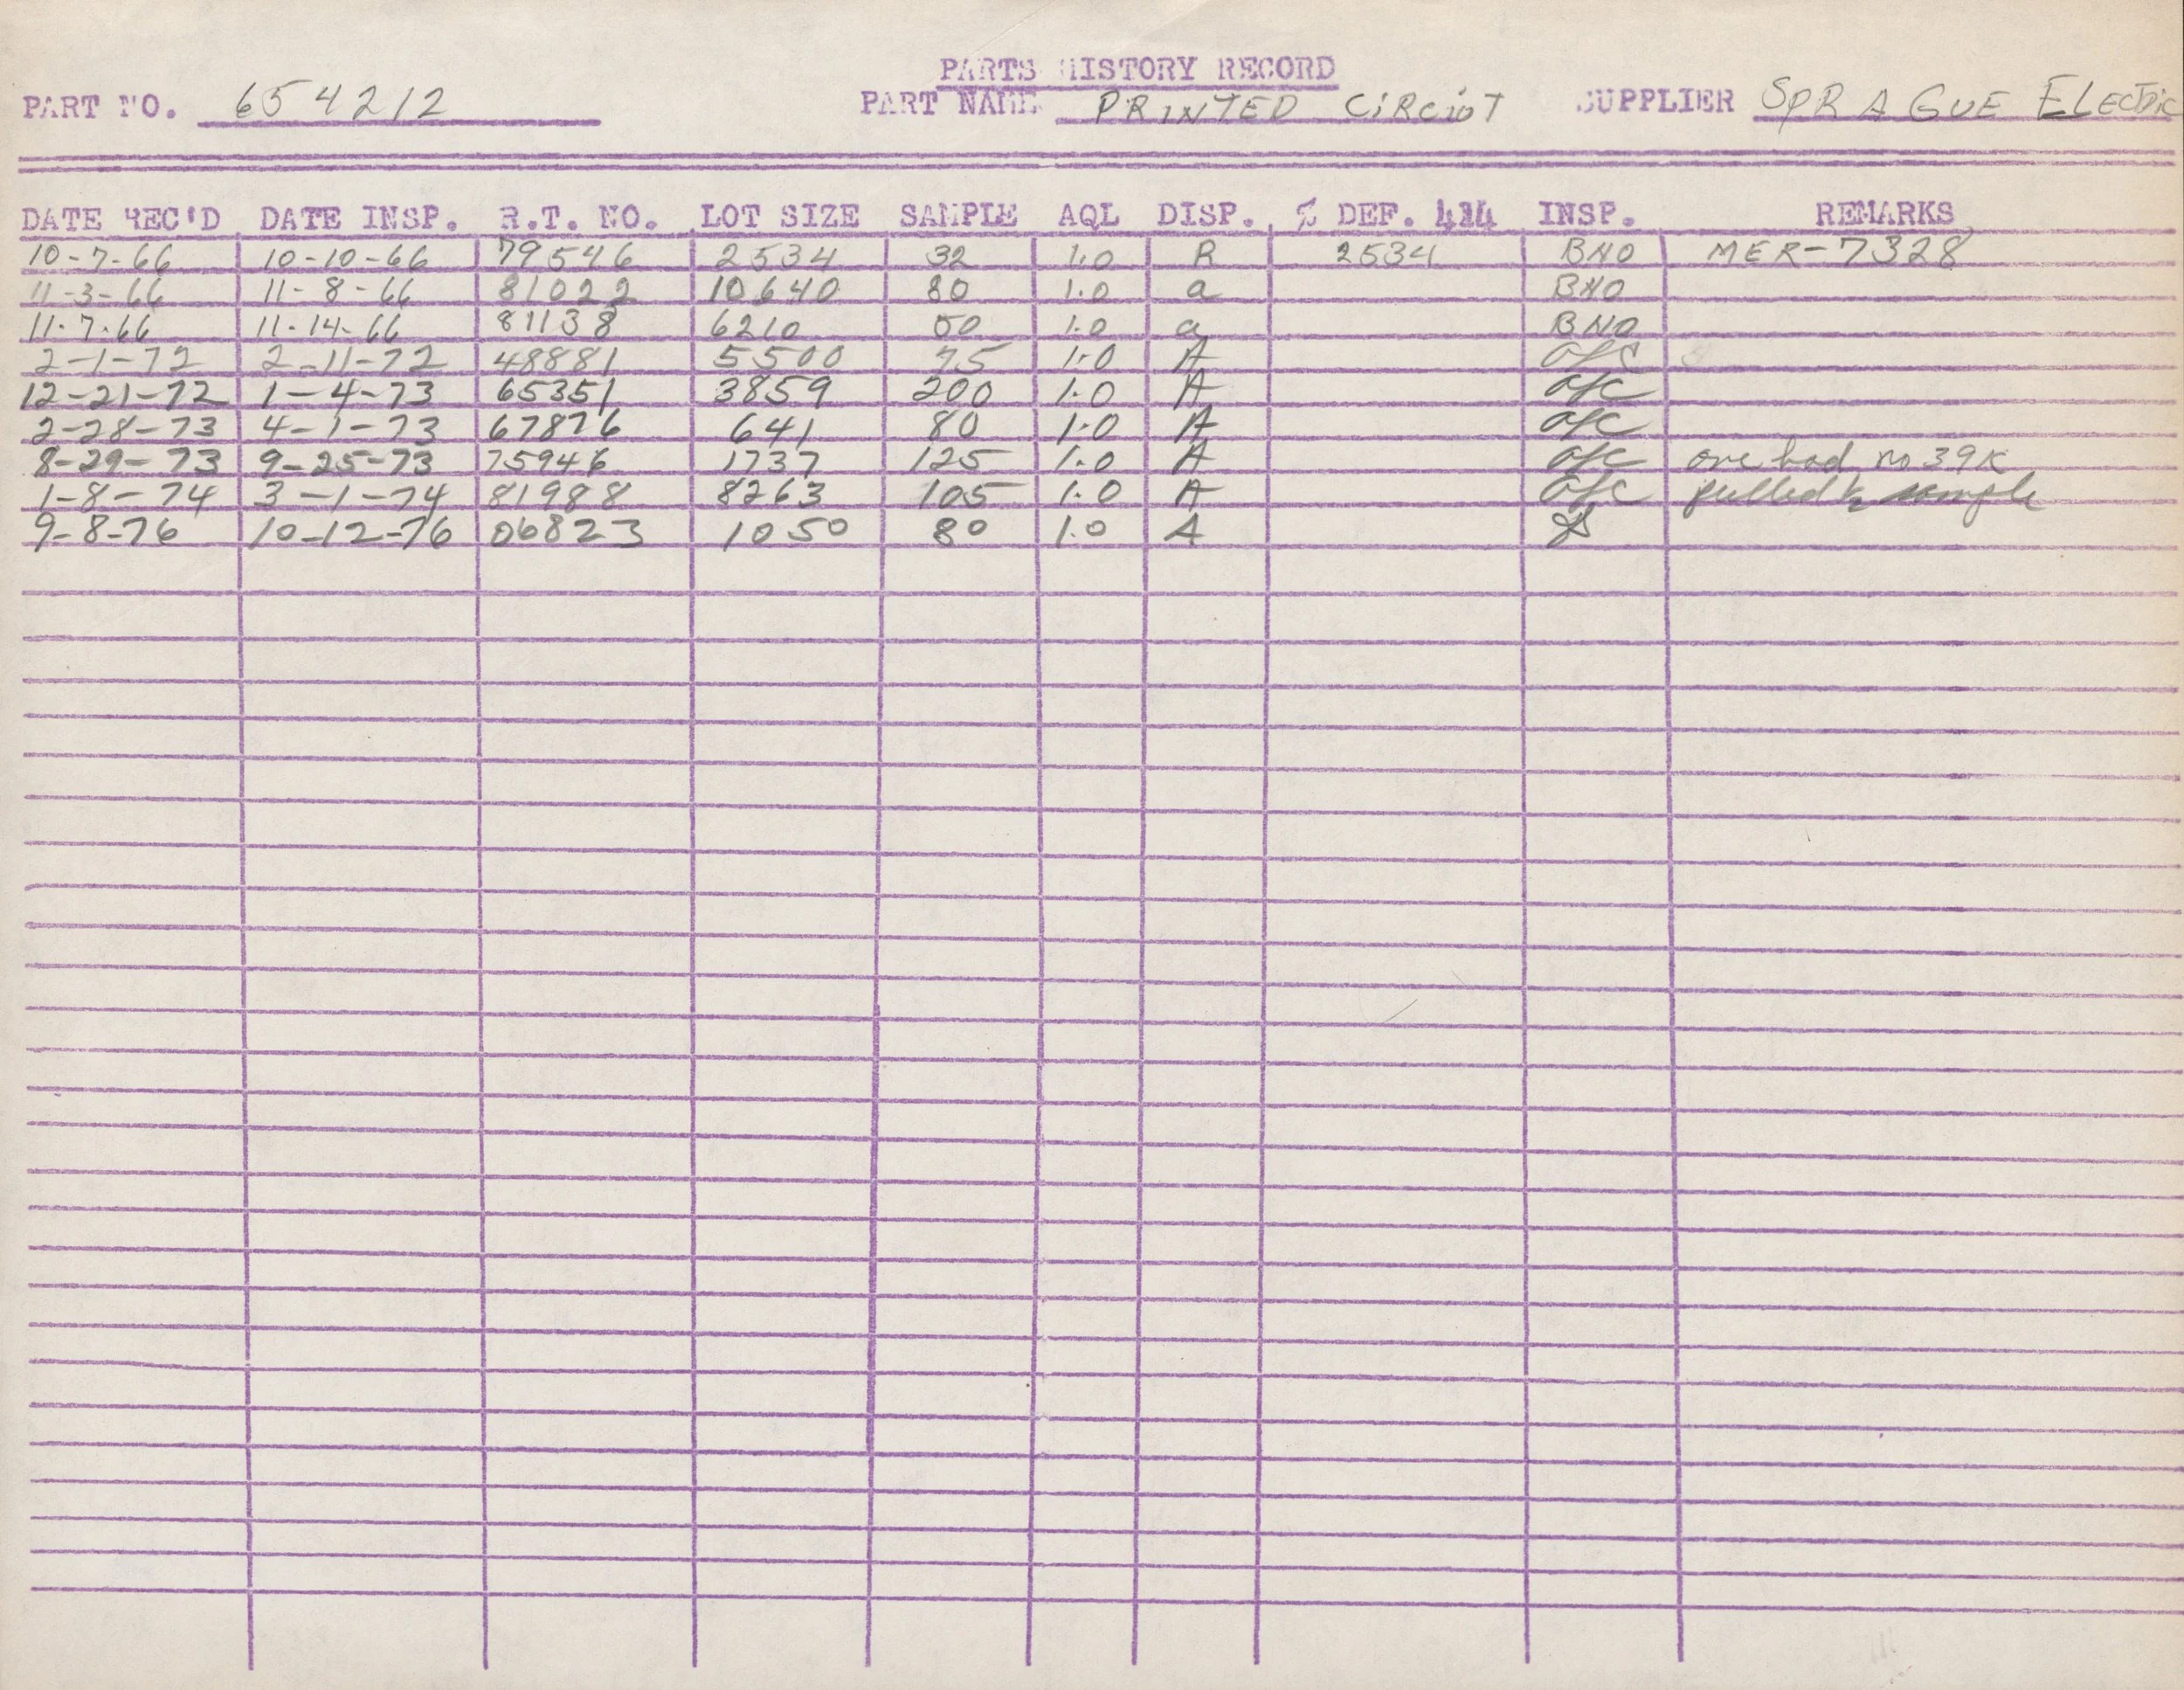 PARTS HISTORY RECORD
PART NO. 654212 PART NAME PRINTED CIRCIOT SUPPLIER SPRAGUE ELECTRIC
DATE REC'D DATE INSP. R.T. NO. LOT SIZE SAMPLE AQL DISP. % DEF. INSP. REMARKS
10-7-66 10-10-66 79546 2534 32 1.0 R 2534 BNO MER-7328
11-3-66 11-8-66 81022 10640 80 1.0 a BNO
11-7-66 11-14-66 81138 6210 50 1.0 a BNO
2-1-72 2-11-72 48881 5500 75 1.0 A
12-21-72 1-4-73 65351 3859 200 1.0 A
2-28-73 4-1-73 67876 641 80 1.0 A
8-29-73 9-25-73 75946 1737 125 1.0 A one had no 39K
1-8-74 3-1-74 81988 8263 105 1.0 A pulled sample
9-8-76 10-12-76 06823 1050 80 1.0 A